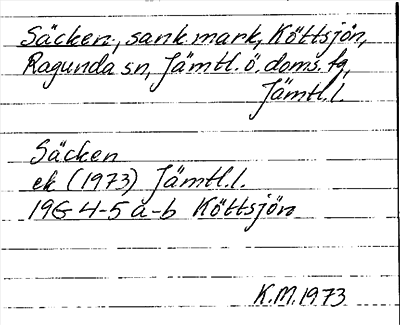 Säcken, sank mark, Köttsjön,
Ragunda sn, Jämtl. ö. doms. fg,
Jämtl. l.
Säcken
ek (1973) Jämtl. l.
19G 4-5 a-b Köttsjön
K.M. 1973